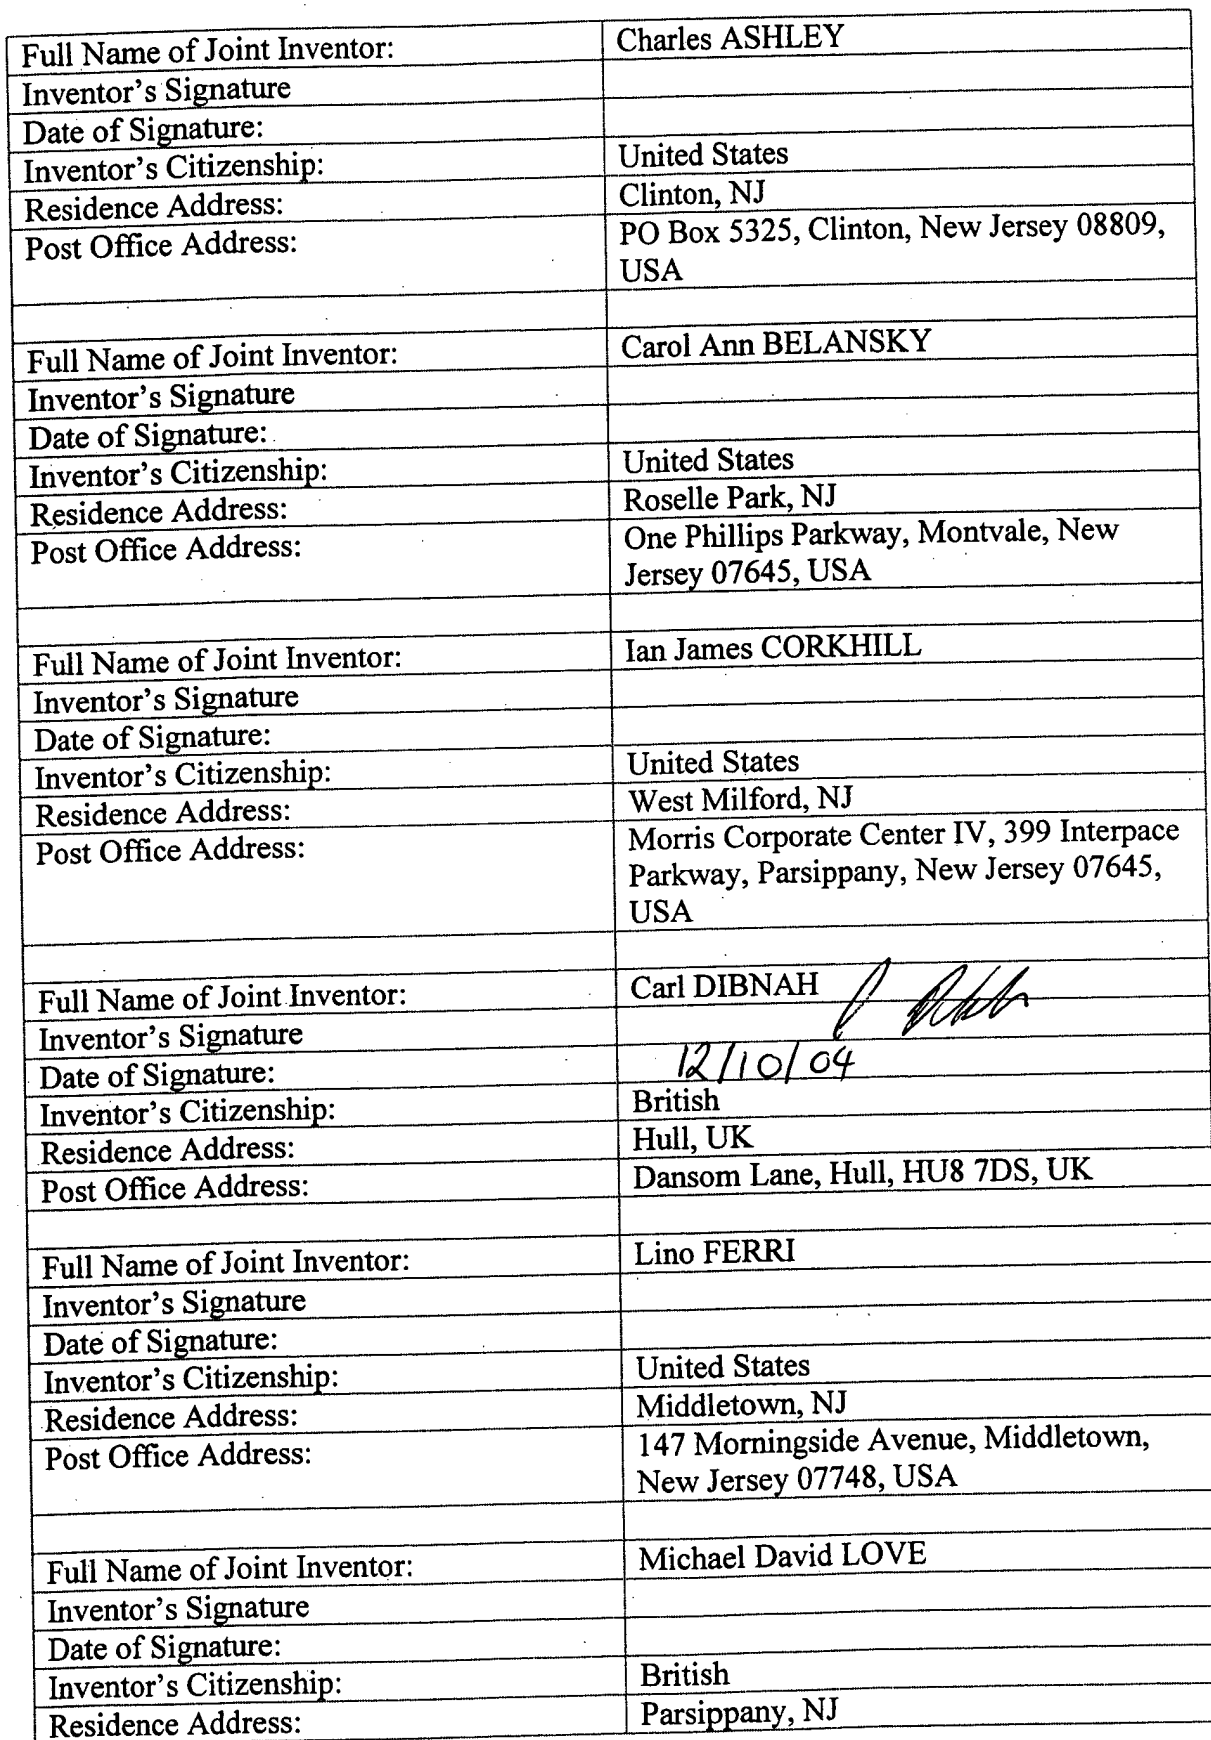 Full Name of Joint Inventor: Charles ASHLEY
Inventor's Signature
Date of Signature:
Inventor's Citizenship: United States
Residence Address: Clinton, NJ
Post Office Address: PO Box 5325, Clinton, New Jersey 08809,
USA
Full Name of Joint Inventor: Carol Ann BELANSKY
Inventor's Signature
Date of Signature:
Inventor's Citizenship: United States
Residence Address: Roselle Park, NJ
Post Office Address: One Phillips Parkway, Montvale, New
Jersey 07645, USA
Full Name of Joint Inventor: Ian James CORKHILL
Inventor's Signature
Date of Signature:
Inventor's Citizenship: United States
Residence Address: West Milford, NJ
Post Office Address: Morris Corporate Center IV, 399 Interpace
Parkway, Parsippany, New Jersey 07645,
USA
Full Name of Joint Inventor: Carl DIBNAH
Inventor's Signature
Date of Signature: 12/10/04
Inventor's Citizenship: British
Residence Address: Hull, UK
Post Office Address: Dansom Lane, Hull, HU8 7DS, UK
Full Name of Joint Inventor: Lino FERRI
Inventor's Signature
Date of Signature:
Inventor's Citizenship: United States
Residence Address: Middletown, NJ
Post Office Address: 147 Morningside Avenue, Middletown,
New Jersey 07748, USA
Full Name of Joint Inventor: Michael David LOVE
Inventor's Signature
Date of Signature:
Inventor's Citizenship: British
Residence Address: Parsippany, NJ